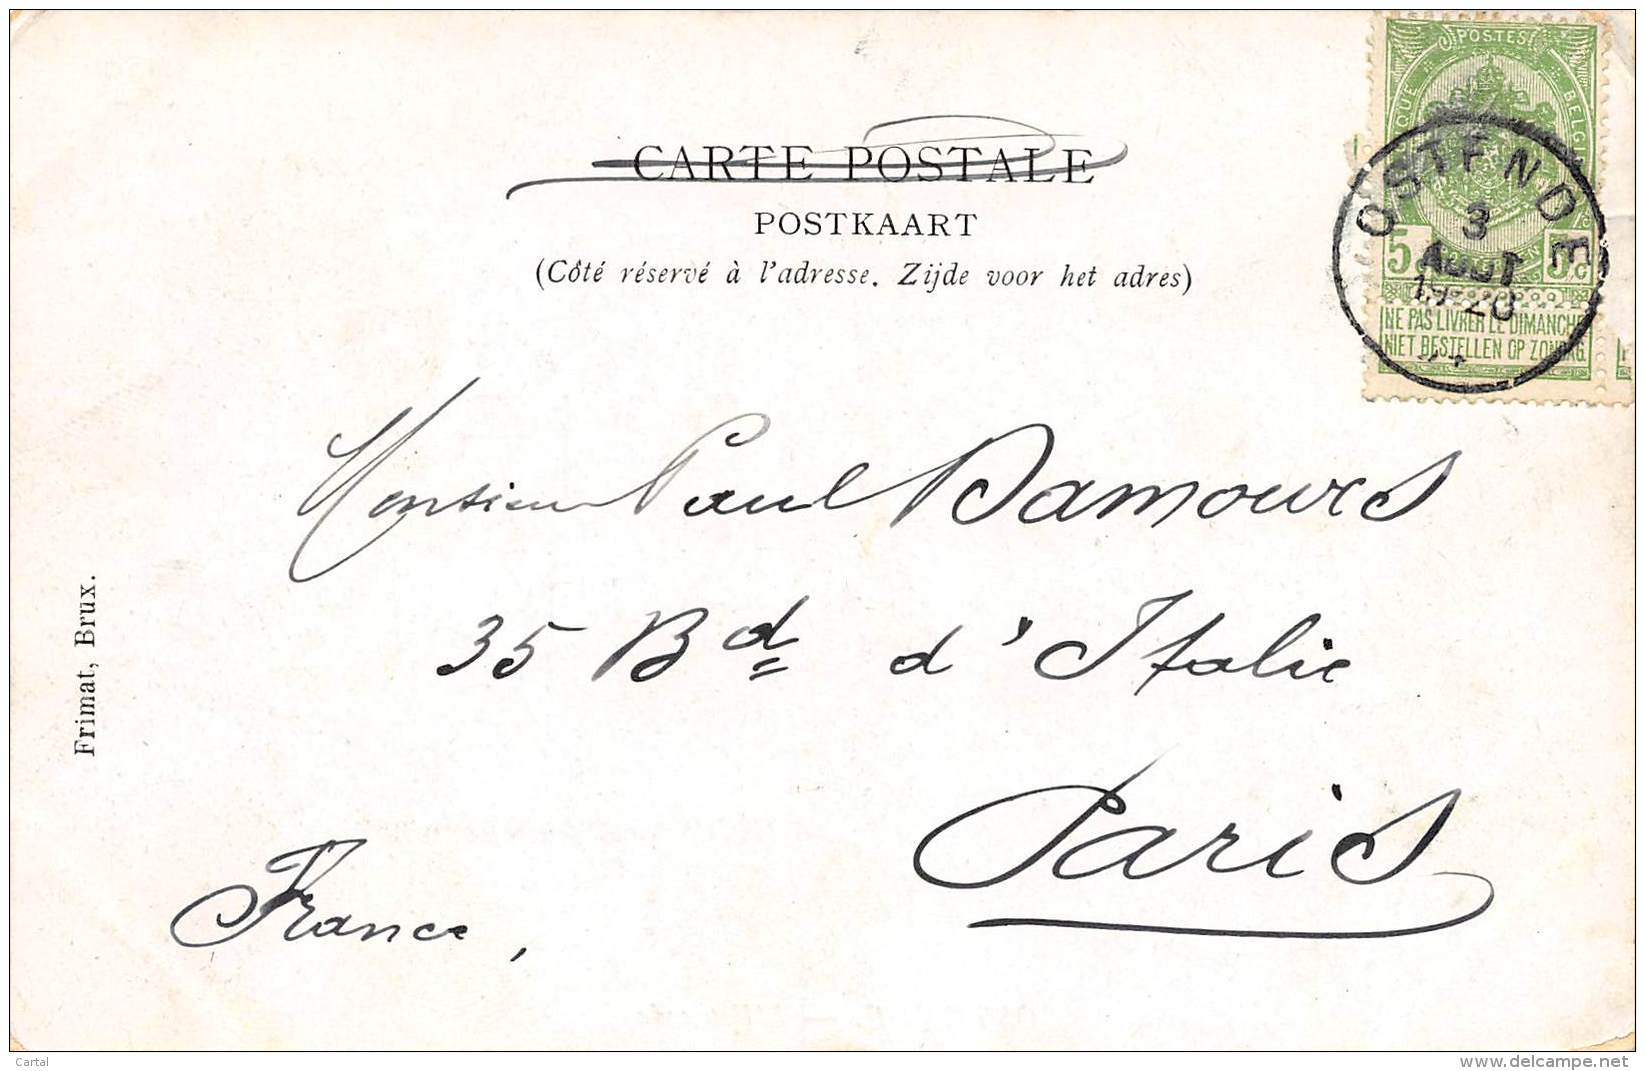 POSTES
BELGIQUE
OSTENDE
3
AOUT
19-20
5 CENTIMEN 5c
NE PAS LIVRER LE DIMANCHE
NIET BESTELLEN OP ZONDAG.
CARTE POSTALE
POSTKAART
(Côté réservé à l'adresse. Zijde voor het adres)
Monsieur Paul Damours
35 Bd d'Italie
Paris
France,
Frimat, Brux.
Cartal
www.delcampe.net